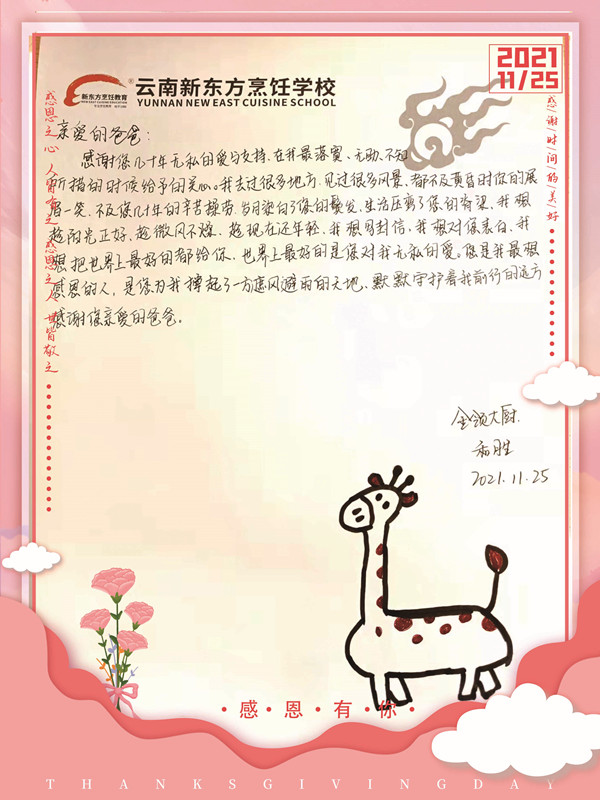 2021
11/25
新东方烹饪教育
云南新东方烹饪学校
YUNNAN NEW EAST CUISINE SCHOOL
亲爱的爸爸：
感谢您几十年无私的爱与支持，在我最落寞、无助、不知
所措的时候给予的关心。我去过很多地方，见过很多风景，都不及黄昏时你的展
眉一笑，不及您几十年的辛苦操劳，岁月染白了您的鬓发，生活压弯了您的脊梁，我想
趁阳光正好，趁微风不燥，趁现在还年轻，我想写封信，我想对您表白，我
想把世界上最好的都给你，世界上最好的是您对我无私的爱。您是我最想
感恩的人，是您为我撑起了一方遮风避雨的天地，默默守护着我前行的远方
感谢您亲爱的爸爸。
金领大厨
和胜
2021.11.25
感恩之心 人皆有之 感恩之 世皆敬之
感谢时间的美好
·感·恩·有·你·
THANKSGIVINGDAY